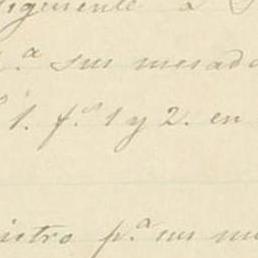 siguiente a
p.ª sus mesada
1. f.s 1 y 2. en
istro p.ª sus me